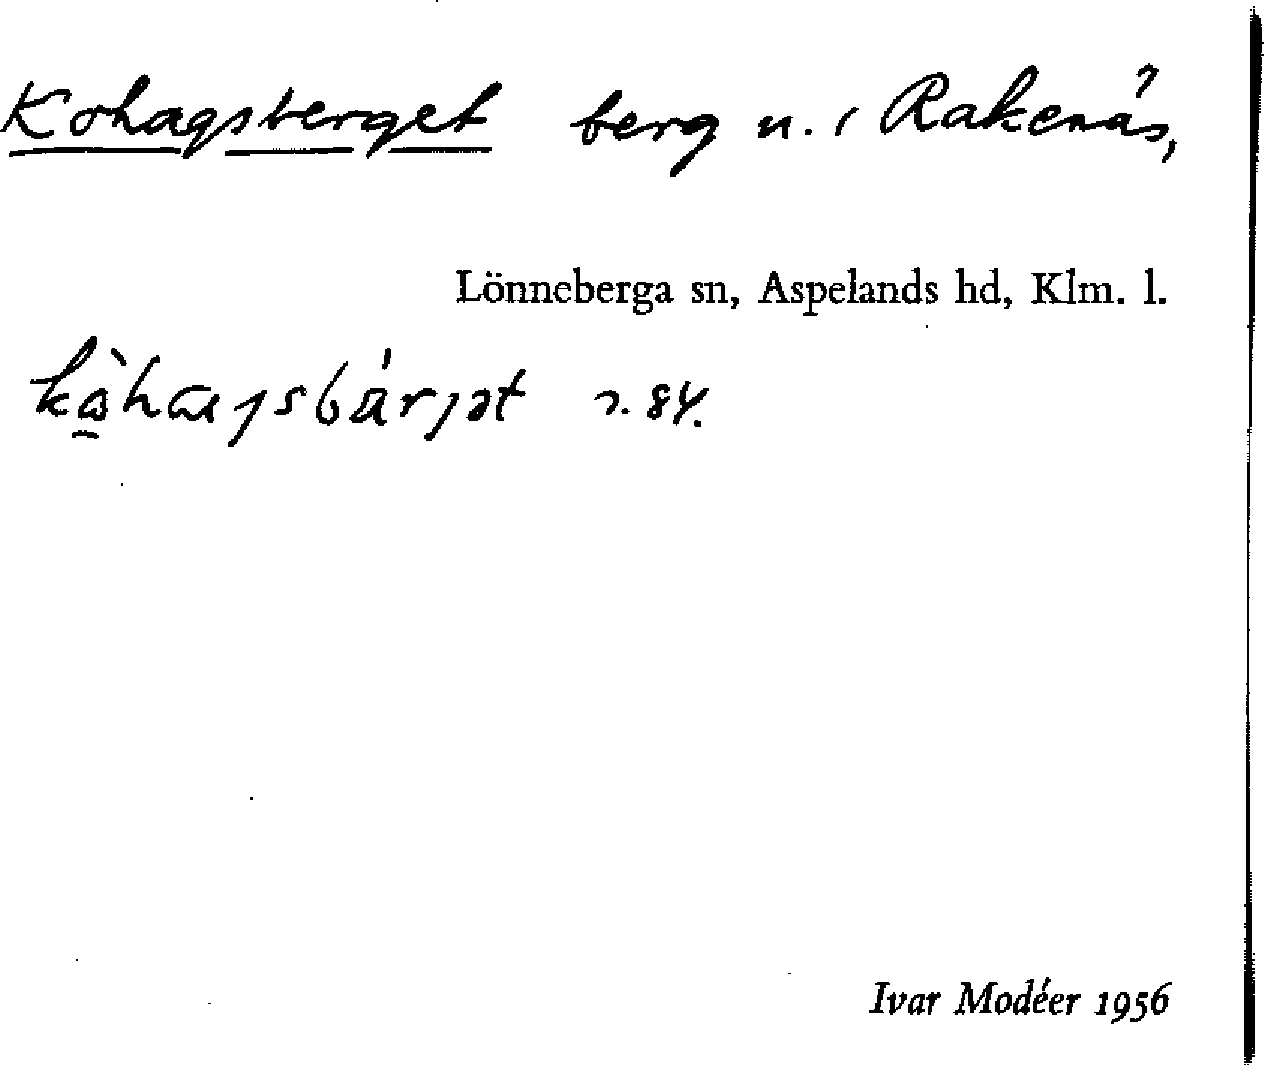 Kohagsberget berg n. i Rakenäs,
Lönneberga sn, Aspelands hd, Klm. l.
84.
Ivar Modéer 1956